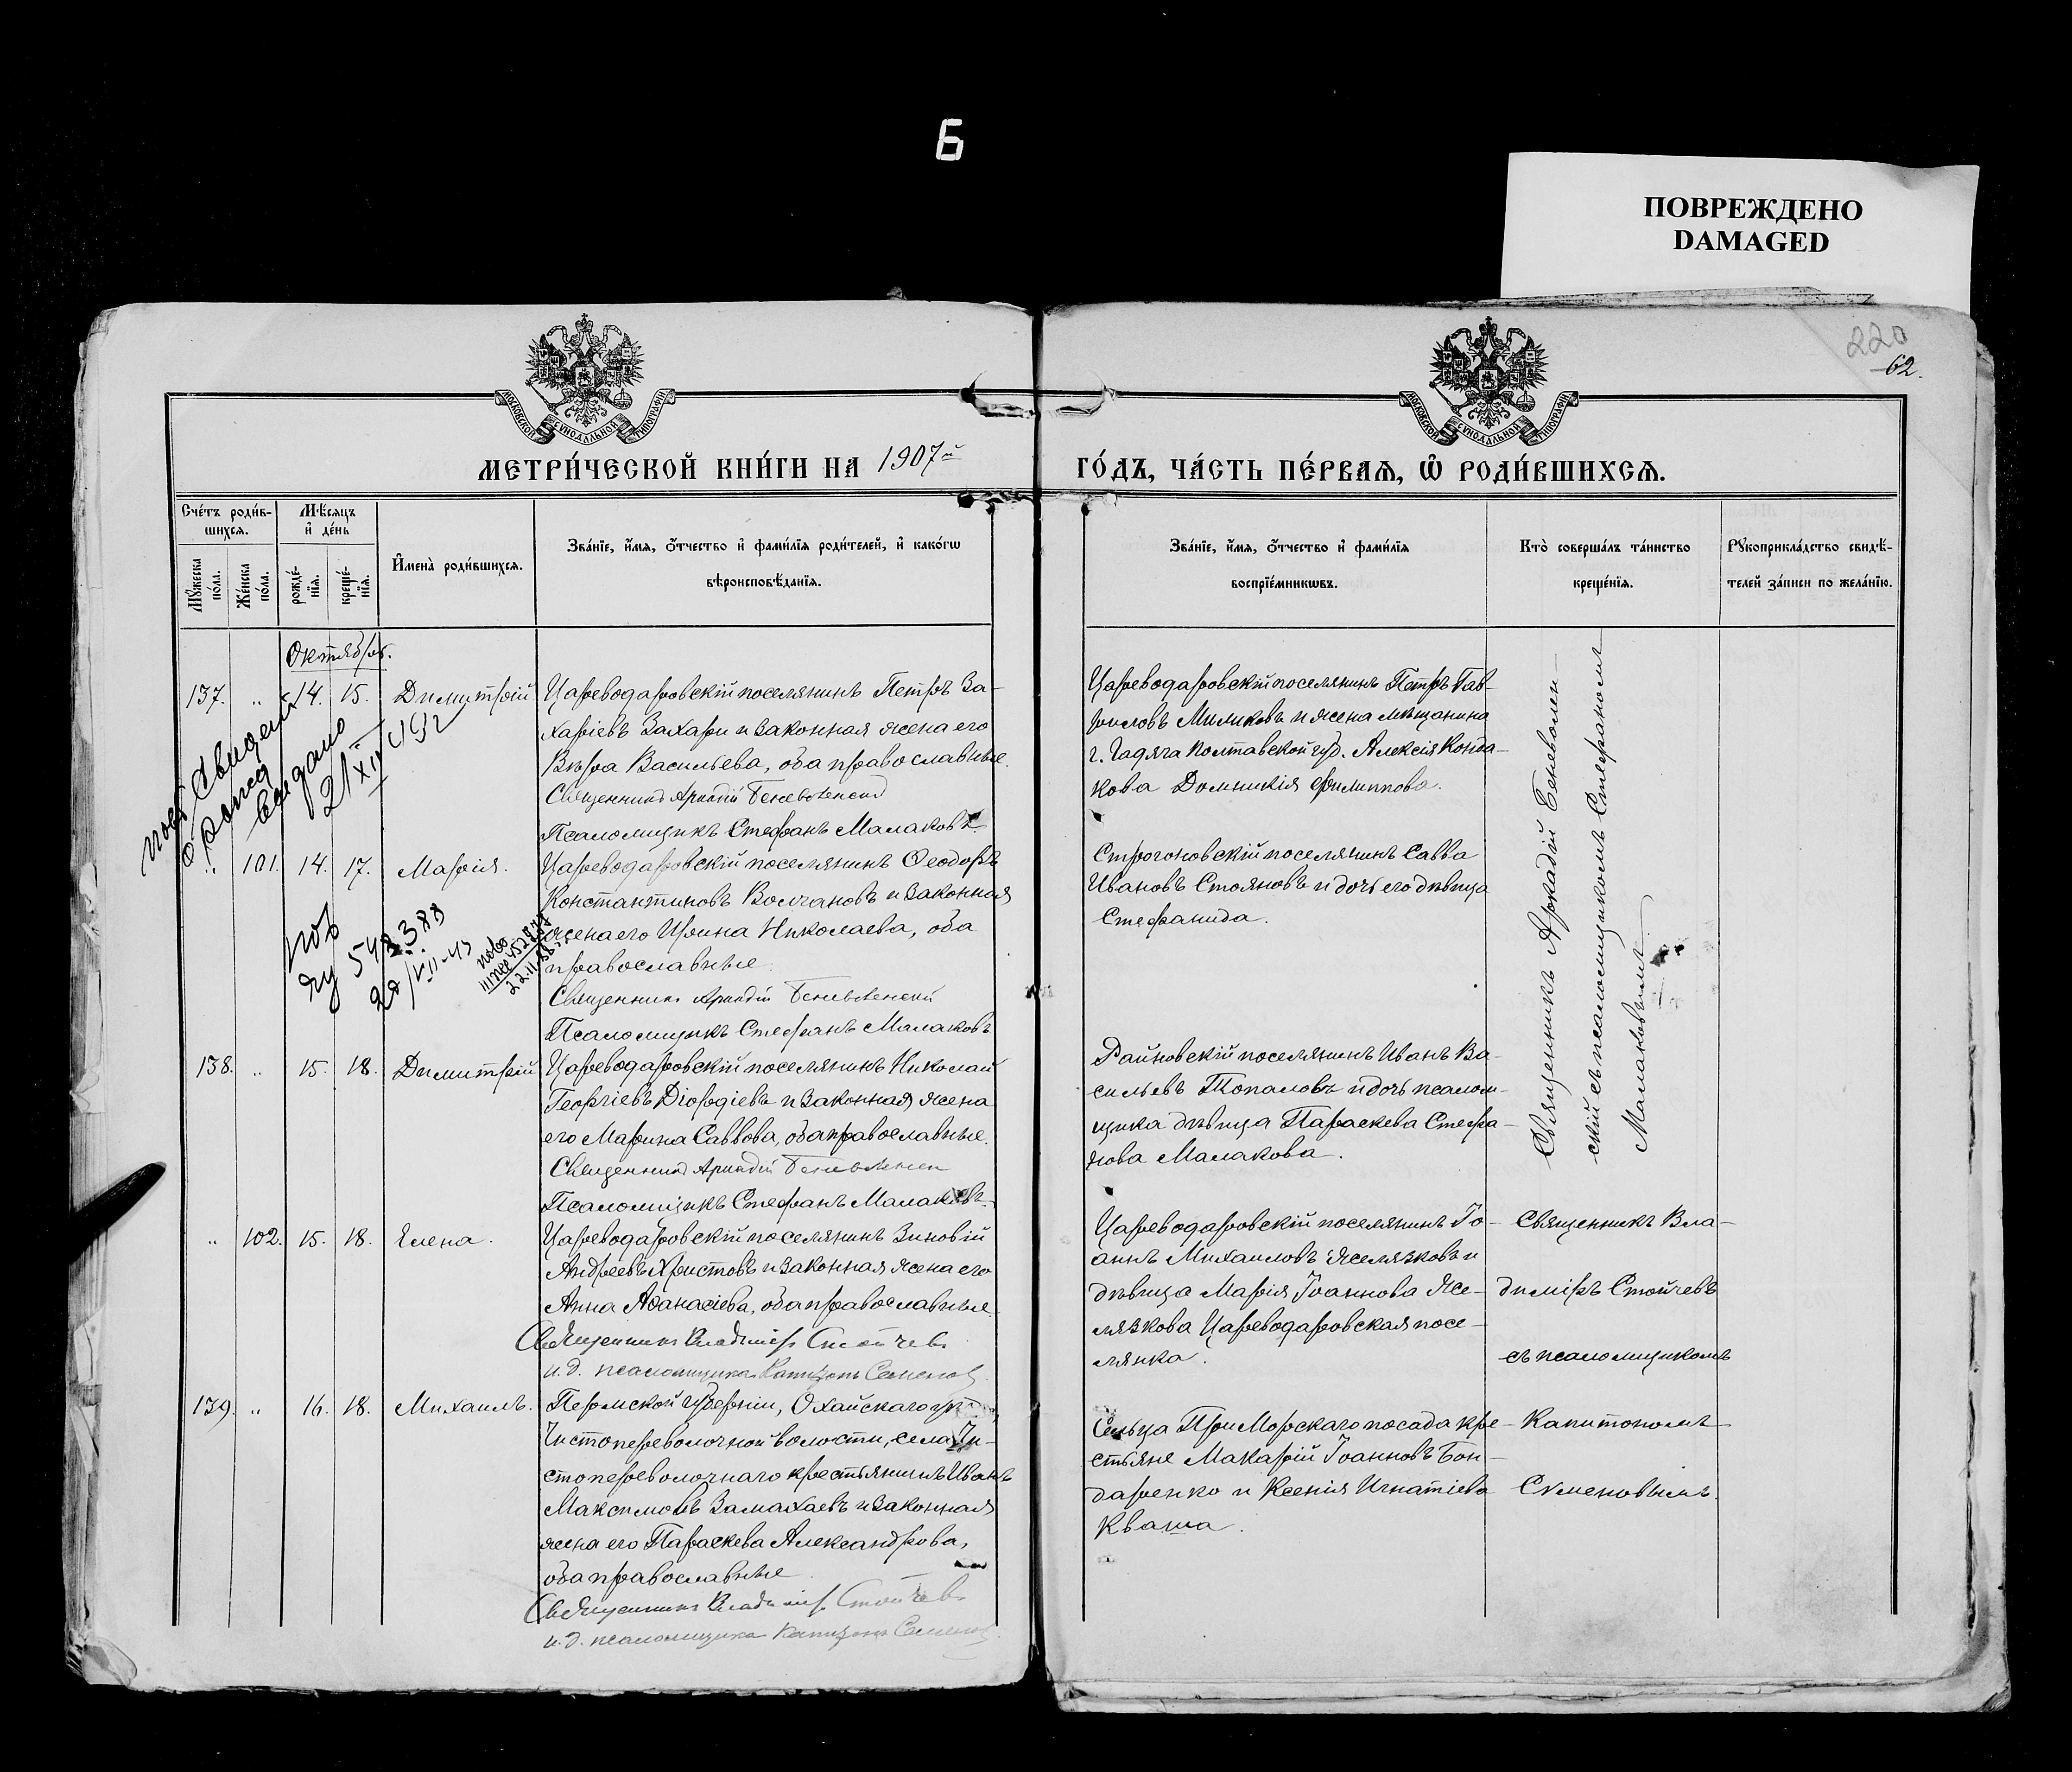 Б
ПОВРЕЖДЕНО
DAMAGED
220
62.
МОСКОВСКОЙ СУНОДАЛЬНОЙ ТИПОГРАФІИ
МОСКОВСКОЙ СУНОДАЛЬНОЙ ТИПОГРАФІИ
МЕТРИ́ЧЕСКОЙ КНИ́ГИ НА 1907й
ГО́ДЪ, ЧА́СТЬ ПЕ́РВАѦ, Ѡ РОДИ́ВШИХСѦ.
Сче́тъ роди́в-
шихсѧ.
Мꙋ́жеска по́ла.
Же́нска по́ла.
Мѣ́сѧцъ
и҆ де́нь
рожде́-
нїѧ.
креще́-
нїѧ.
И҆мена̀ роди́вшихсѧ.
Зва́нїе, и҆́мѧ, ѻ҆́тчество и҆ фами́лїѧ роди́телей, и҆ како́гѡ
вѣроисповѣ́данїѧ.
Зва́нїе, и҆́мѧ, ѻ҆́тчество и҆ фами́лїѧ
воспрїе́мникѡвъ.
Кто̀ соверша́лъ та́инство
креще́нїѧ.
Рꙋкоприкла́дство свидѣ́-
телей за́писи по жела́нїю.
Октябрь.
137. " 14. 15. Димитрій
Цареводаровскій поселянинъ Петръ За-
харіевъ Захари и законная жена его
Вѣра Васильева, оба православные.
Священникъ Аркадій Беневоленскій
Псаломщикъ Стефанъ Малаковъ
Цареводаровскій поселянинъ Петръ Гав-
риловъ Милковъ и жена мѣщанина
г. Гадяча Полтавской губ. Алексія Конда-
кова Домникія Филиппова.
" 101. 14. 17. Марія.
Цареводаровскій поселянинъ Ѳеодоръ
Константиновъ Волчановъ и законная
жена его Ирина Николаева, оба
православные.
Священникъ Аркадій Беневоленскій
Псаломщикъ Стефанъ Малаковъ
Строгоновскій поселянинъ Савва
Ивановъ Стояновъ и дочь его дѣвица
Стефанида.
138. " 15. 18. Димитрій
Цареводаровскій поселянинъ Николай
Георгіевъ Діордіевъ и законная жена
его Марина Саввова, оба православные.
Священникъ Аркадій Беневоленскій
Псаломщикъ Стефанъ Малаковъ
Райновскій поселянинъ Иванъ Ва-
сильевъ Топаловъ и дочь псалом-
щика дѣвица Параскева Стефа-
нова Малакова.
Священникъ Аркадій Беневолен-
скій съ псаломщикомъ Стефаномъ
Малаковымъ.
" 102. 15. 18. Елена.
Цареводаровскій поселянинъ Зиновій
Андреевъ Христовъ и законная жена его
Анна Аѳанасіева, оба православные
Священникъ Владиміръ Стойчевъ
и. д. псаломщика Капитонъ Семеновъ
Цареводаровскій поселянинъ Іо-
аннъ Михаиловъ Желязковъ и
дѣвица Марія Іоаннова Же-
лязкова Цареводаровская посе-
лянка.
Священникъ Вла-
диміръ Стойчевъ
съ псаломщикомъ
Капитономъ
Семеновымъ.
139. " 16. 18. Михаилъ.
Пермской губерніи, Оханскаго
Чистопереволочной волости, села Чи-
стопереволочнаго крестьянинъ Иванъ
Максимовъ Замахаевъ и законная
жена его Параскева Александрова,
оба православные
Священникъ Владиміръ Стойчевъ
и. д. псаломщика Капитонъ Семеновъ
Сельца При Морскаго посада кре-
стьяне Макарій Іоанновъ Бон-
даренко и Ксенія Игнатіева
Кваша.